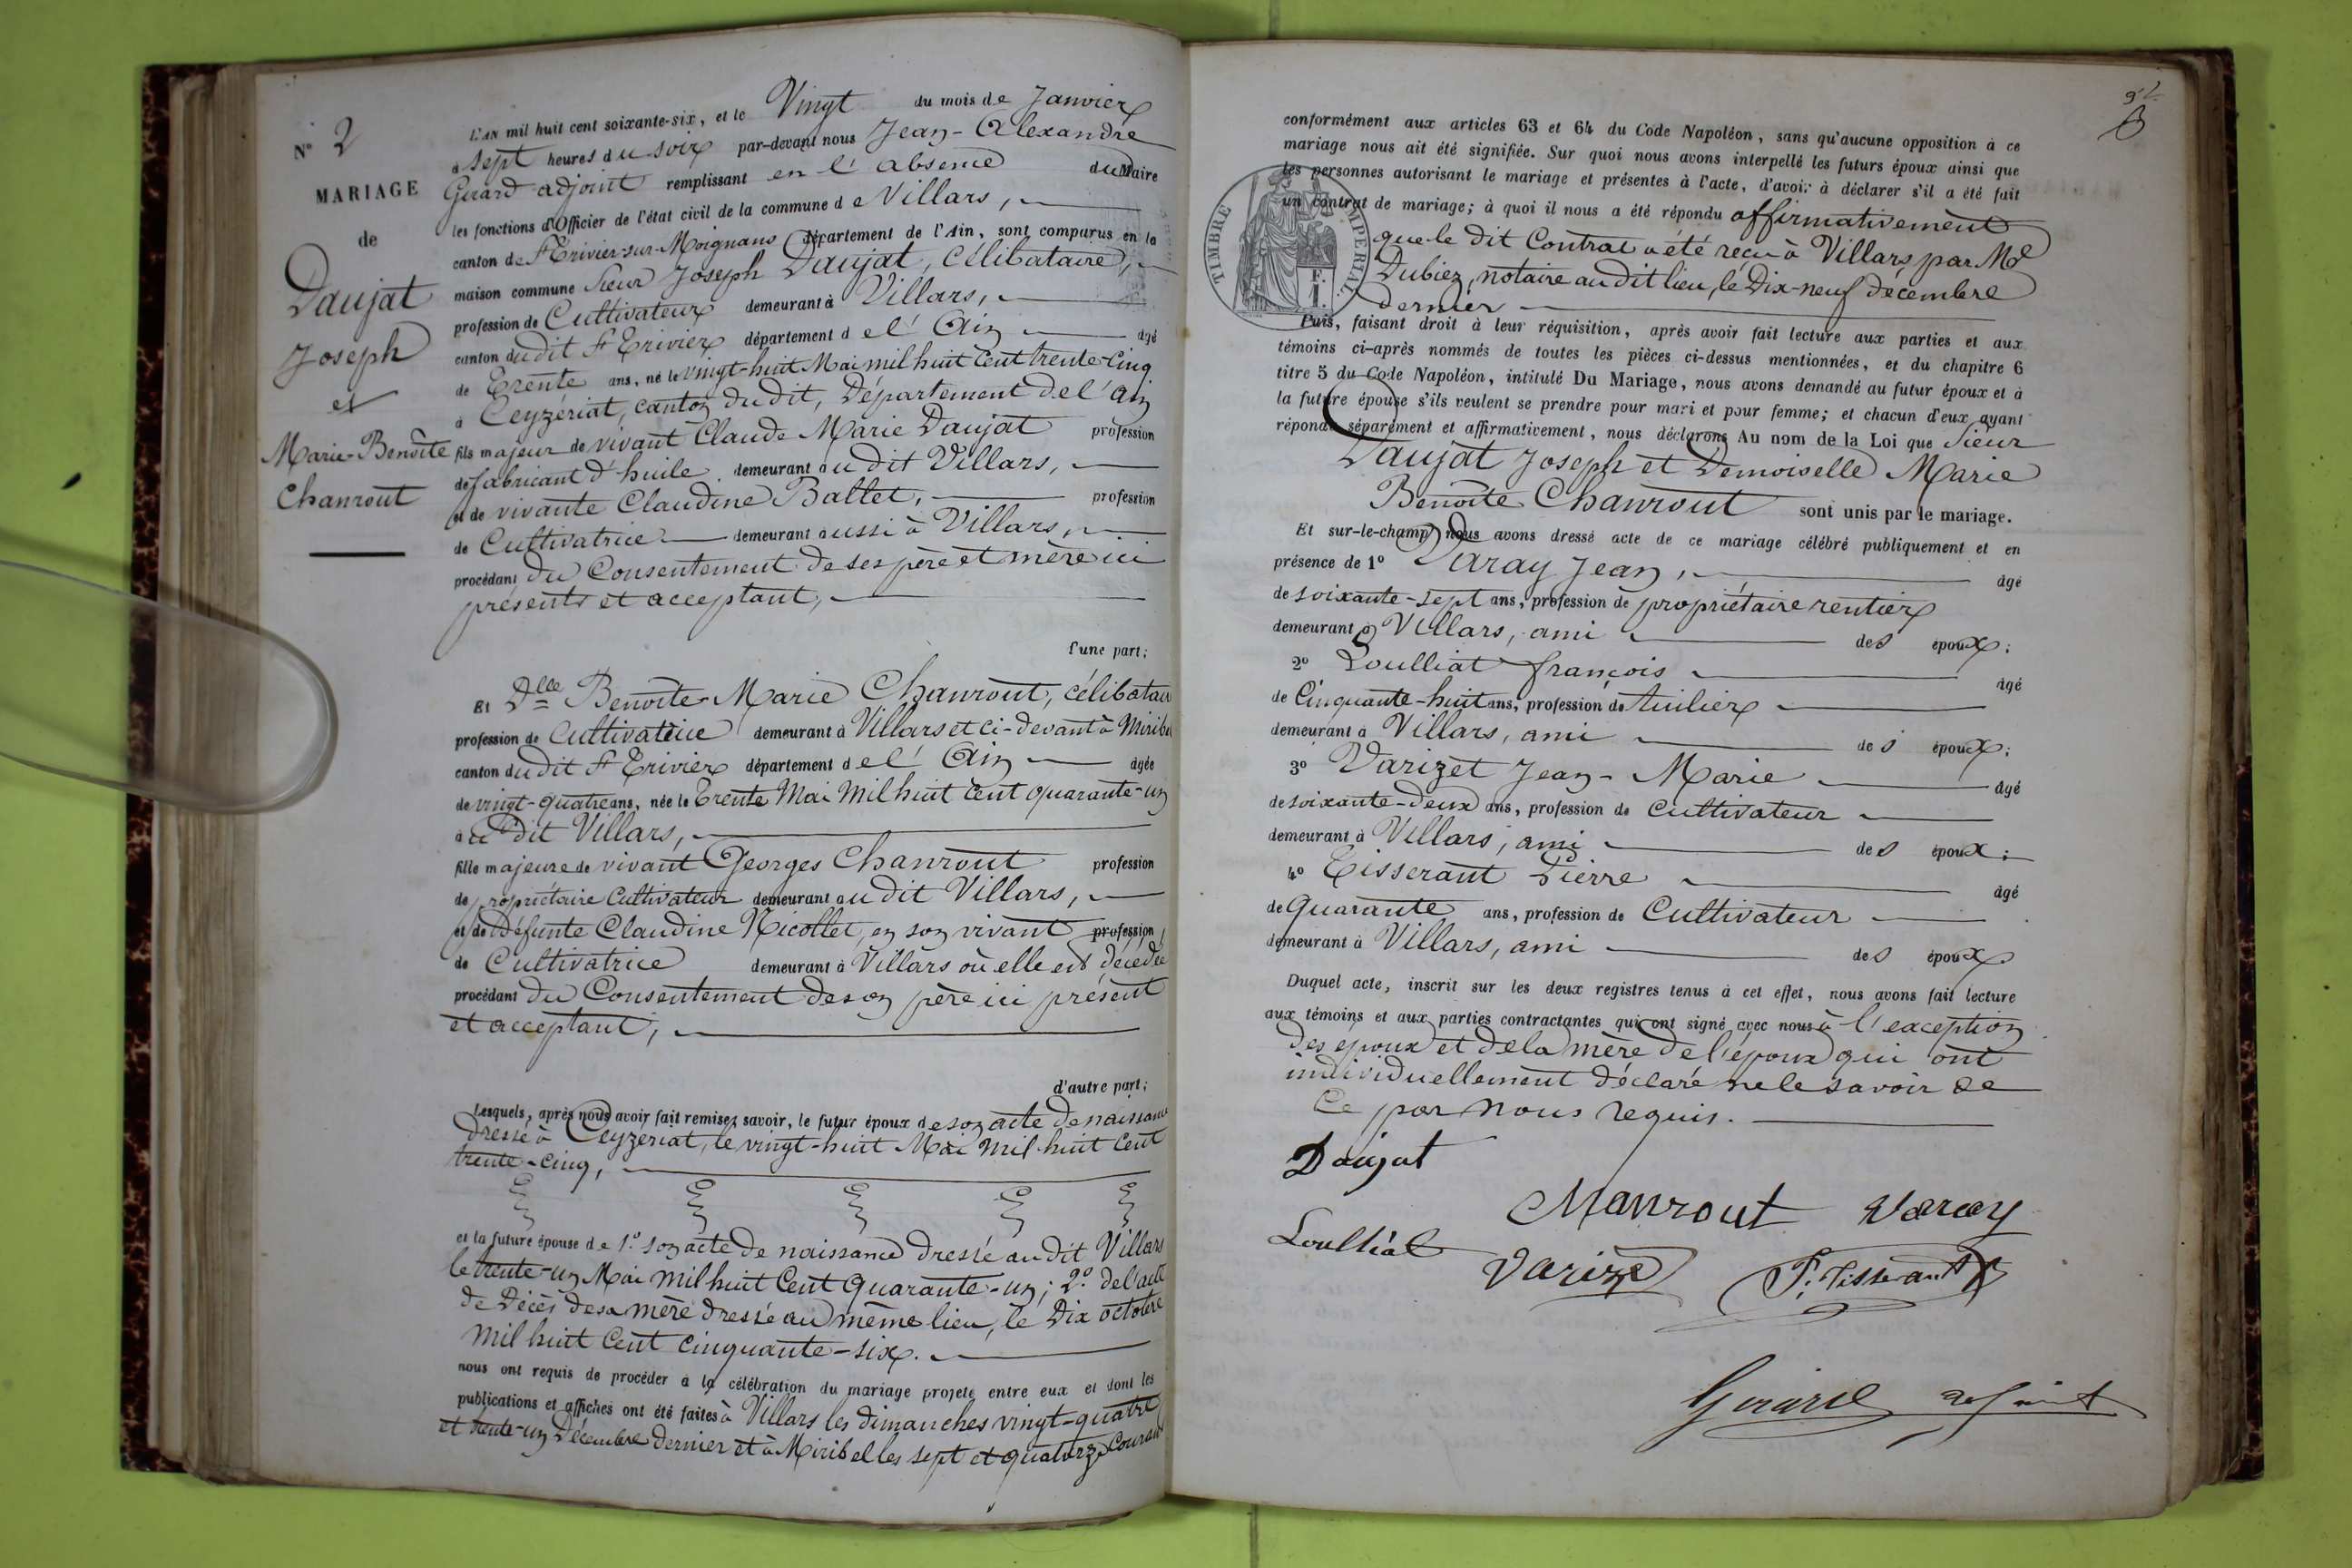 N° 2
MARIAGE
de
Daujat
Joseph
et
Marie-Benoîte
Chanrout
L'AN mil huit cent soixante-six, et le Vingt du mois de Janvier
à sept heures du soir par-devant nous Jean-Alexandre
Girard adjoint remplissant en l'absence du Maire
les fonctions d'Officier de l'état civil de la commune de Villars,
canton de St Trivier-sur-Moignans département de l'Ain, sont comparus en la
maison commune Sieur Joseph Daujat, Célibataire,
profession de Cultivateur demeurant à Villars,
canton dudit St Trivier département de l'Ain âgé
de Trente ans, né le vingt-huit Mai mil huit Cent trente-Cinq
à Ceyzériat, canton dudit, Département de l'Ain
fils majeur de vivant Claude Marie Daujat profession
de fabricant d'huile demeurant audit Villars,
et de vivante Claudine Ballet, profession
de Cultivatrice demeurant aussi à Villars,
procédant du Consentement de ses père et mère ici
présents et acceptant,
d'une part;
Et Dlle Benoîte-Marie Chanrout, célibatair
profession de Cultivatrice demeurant à Villars et ci-devant à Miribe
canton dudit St Trivier département de l'Ain âgée
de vingt-quatre ans, née le Trente Mai Mil huit Cent quarante-un
à u dit Villars,
fille majeure de vivant Georges Chanrout profession
de propriétaire Cultivateur demeurant audit Villars,
et de Défunte Claudine Nicollet, en son vivant profession
de Cultivatrice demeurant à Villars où elle est décédée
procédant du Consentement de son père ici présent
et acceptant,
d'autre part;
Lesquels, après nous avoir fait remise, savoir, le futur époux de son acte de naissance
dressé à Ceyzeriat, le vingt-huit Mai Mil huit Cent
trente-cinq,
et la future épouse de 1.° son acte de naissance dressé audit Villars
le trente-un Mai mil huit Cent quarante-un; 2.° de l'acte
de Décès de sa mère dressé au même lieu, le Dix octobre
Mil huit Cent cinquante-six.
nous ont requis de procéder à la célébration du mariage projeté entre eux et dont les
publications et affiches ont été faites à Villars les dimanches vingt-quatre
et trente-un Décembre dernier et à Miribel les sept et quatorze Courant
conformément aux articles 63 et 64 du Code Napoléon, sans qu'aucune opposition à ce
mariage nous ait été signifiée. Sur quoi nous avons interpellé les futurs époux ainsi que
les personnes autorisant le mariage et présentes à l'acte, d'avoir à déclarer s'il a été fait
un contrat de mariage; à quoi il nous a été répondu affirmativement
que le dit Contrat a été reçu à Villars par Me
Dubiez, notaire au dit lieu, le Dix-neuf décembre
dernier
TIMBRE IMPERIAL
Puis, faisant droit à leur réquisition, après avoir fait lecture aux parties et aux
témoins ci-après nommés de toutes les pièces ci-dessus mentionnées, et du chapitre 6
titre 5 du Code Napoléon, intitulé Du Mariage, nous avons demandé au futur époux et à
la future épouse s'ils veulent se prendre pour mari et pour femme; et chacun d'eux ayant
répondu séparément et affirmativement, nous déclarons Au nom de la Loi que Sieur
Daujat Joseph et Demoiselle Marie
Benoîte Chanrout sont unis par le mariage.
Et sur-le-champ nous avons dressé acte de ce mariage célébré publiquement et en
présence de 1° Varay Jean, âgé
de soixante-sept ans, profession de propriétaire rentier
demeurant à Villars, ami des époux;
2° Loulliat françois âgé
de Cinquante-huit ans, profession de tuilier
demeurant à Villars, ami des époux;
3° Varizet Jean-Marie âgé
de soixante-deux ans, profession de Cultivateur
demeurant à Villars, ami des époux;
4° Tisserant Pierre âgé
de Quarante ans, profession de Cultivateur
demeurant à Villars, ami des époux
Duquel acte, inscrit sur les deux registres tenus à cet effet, nous avons fait lecture
aux témoins et aux parties contractantes qui ont signé avec nous à l'exception
des époux et de la mère de l'époux qui ont
individuellement déclaré ne le savoir de
Ce par nous requis.
Daujat
Chanrout Varay
Loulliat
Varizet P. Tisserant
Girard adjoint